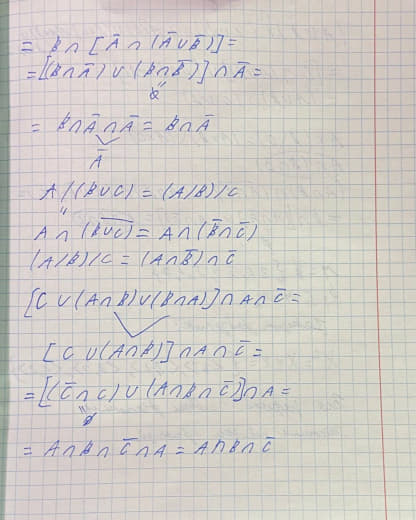 = B ∩ [ Ā ∩ (Ā ∪ B̄)] =
= [(B ∩ Ā) ∪ (B ∩ B̄)] ∩ Ā =
" ∅
= B ∩ Ā ∩ Ā = B ∩ Ā
Ā
A / (B ∪ C) = (A / B) / C
"
A ∩ (B̅ ̅∪̅ ̅C̅) = A ∩ (B̄ ∩ C̄)
(A / B) / C = (A ∩ B̄) ∩ C̄
[C ∪ (A ∩ B) ∪ (B ∩ A)] ∩ A ∩ C̄ =
[C ∪ (A ∩ B)] ∩ A ∩ C̄ =
= [(C̄ ∩ C) ∪ (A ∩ B ∩ C̄)] ∩ A =
" ∅
= A ∩ B ∩ C̄ ∩ A = A ∩ B ∩ C̄